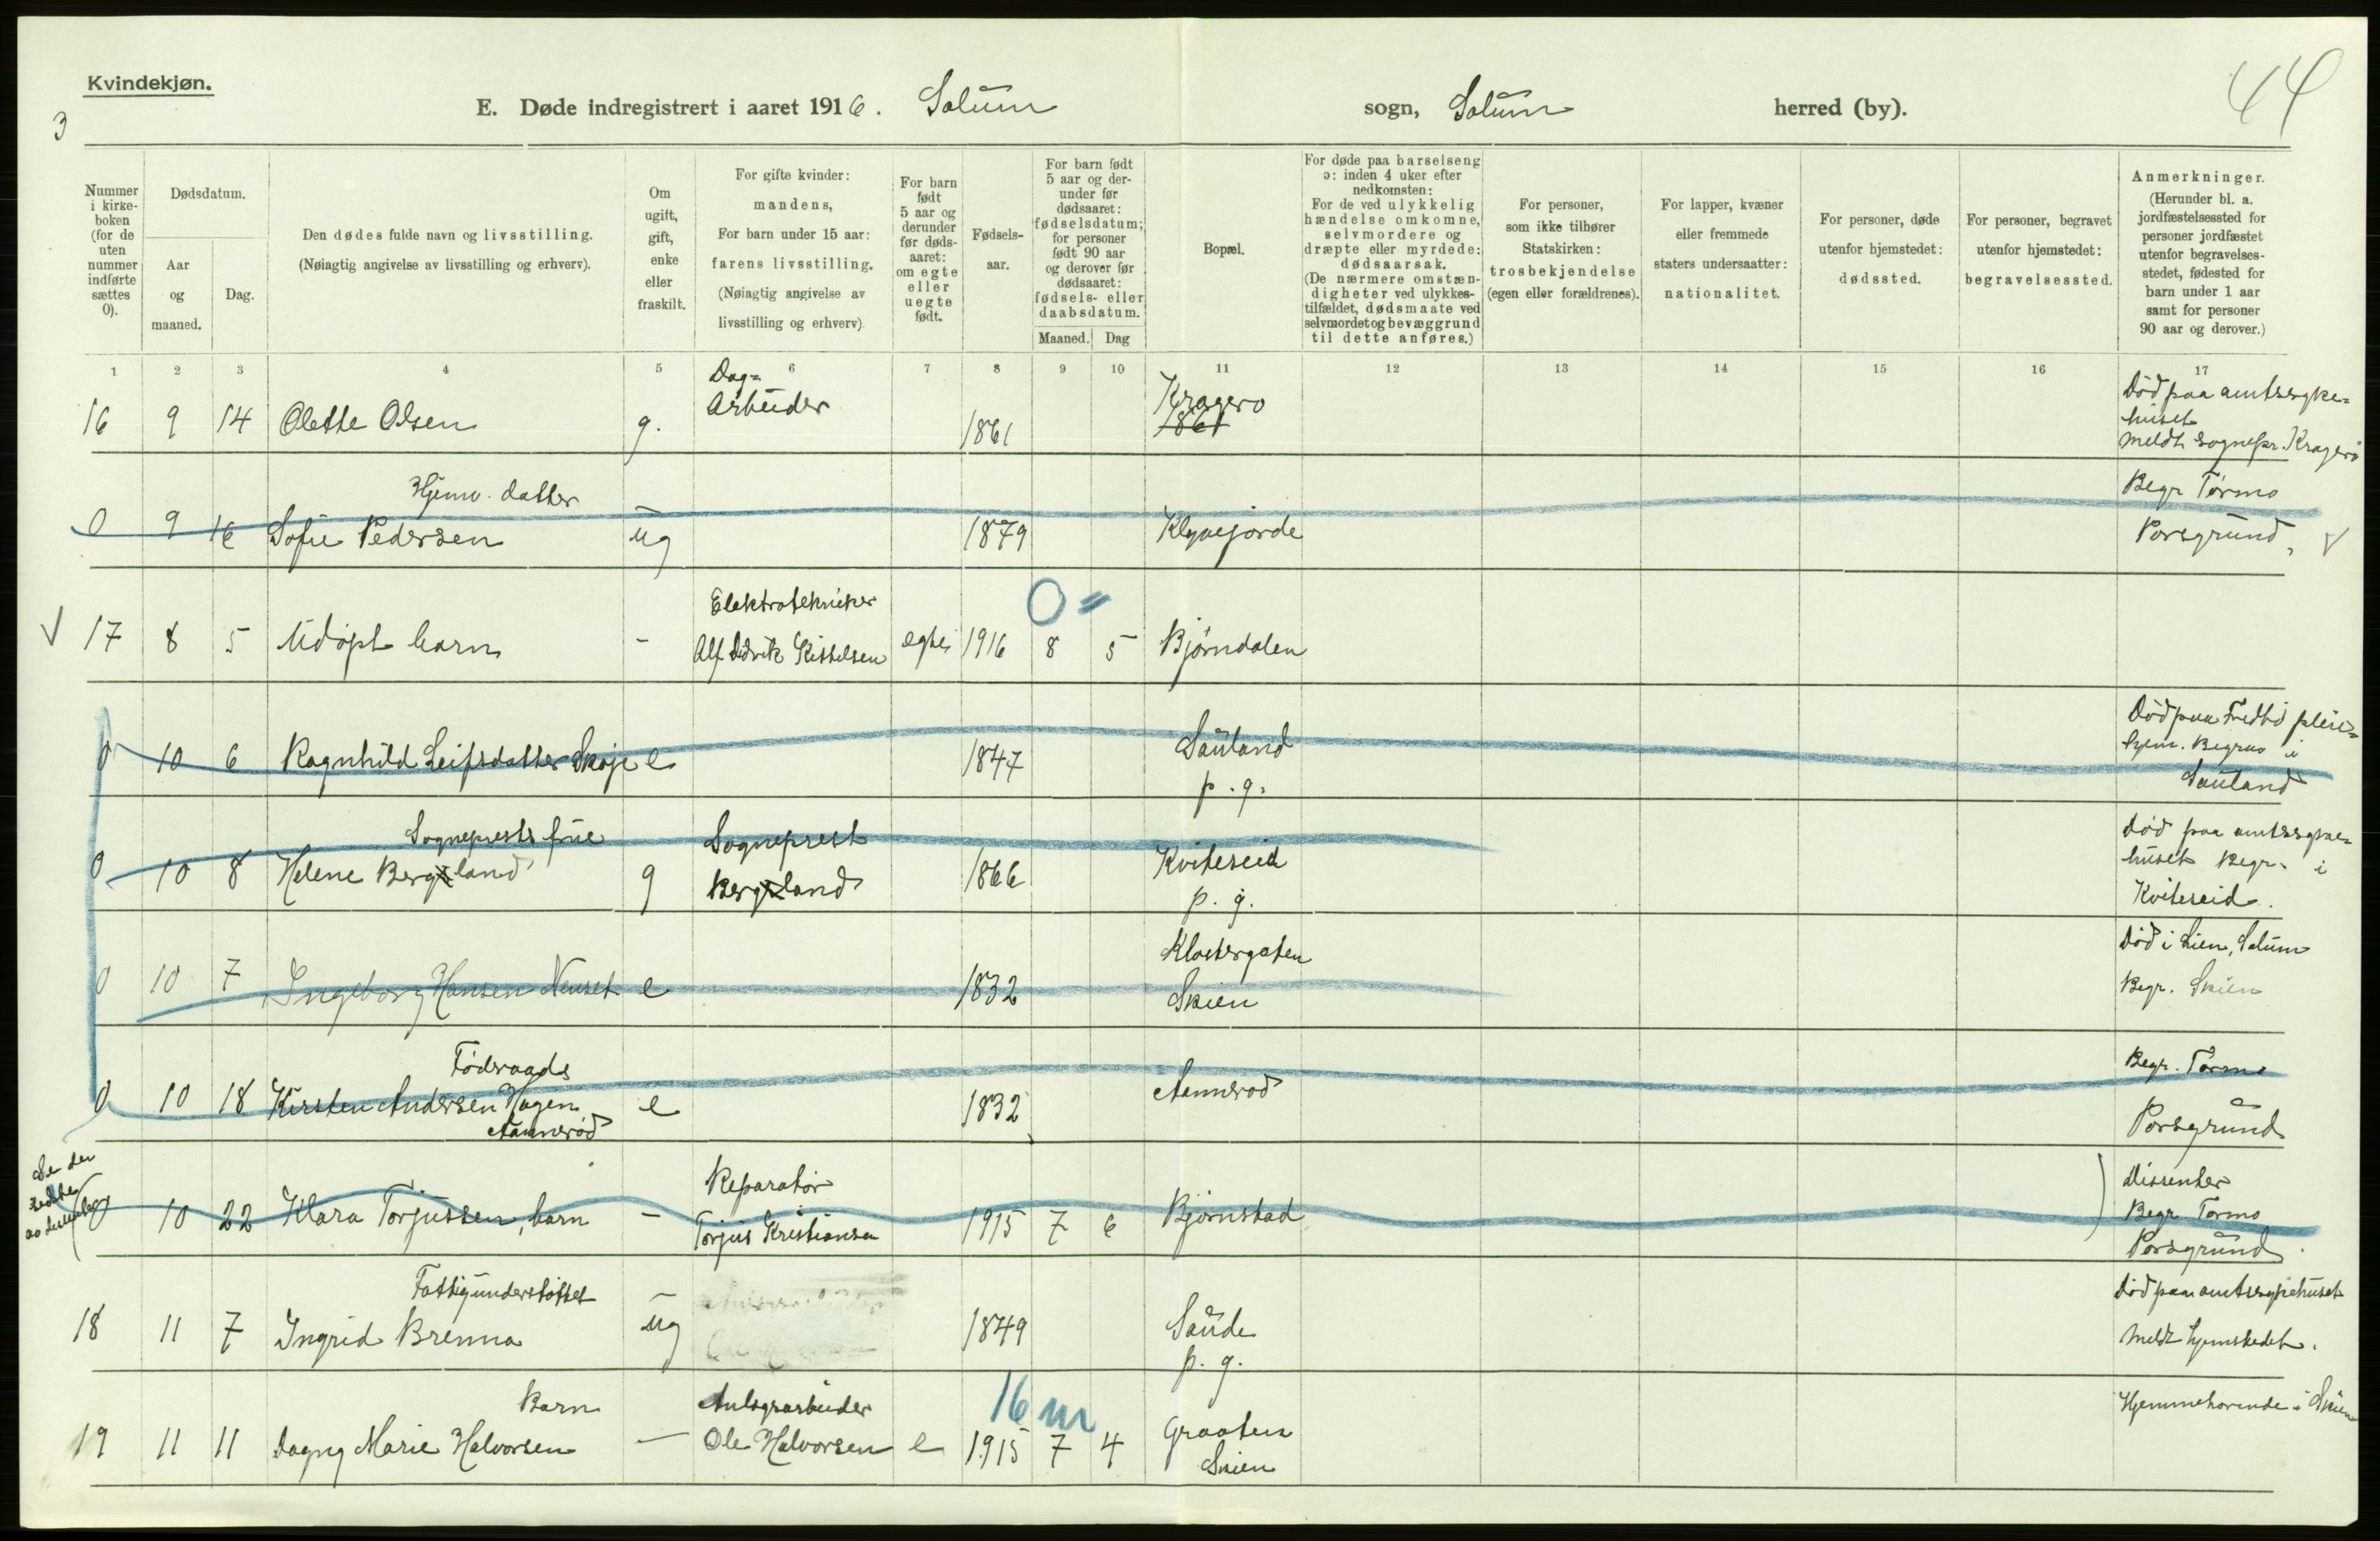 Kvindekjøn.
3
44
E. Døde indregistrert i aaret 1916. Solum sogn, Solum herred (by).
Nummer i kirke-boken (for de uten nummer indførte sættes 0).
Dødsdatum.
Aar og maaned.
Dag.
Den dødes fulde navn og livsstilling.
(Nøiagtig angivelse av livsstilling og erhverv).
Om ugift, gift, enke eller fraskilt.
For gifte kvinder: mandens,
For barn under 15 aar: farens livsstilling.
(Nøiagtig angivelse av livsstilling og erhverv)
For barn født 5 aar og derunder før døds-aaret: om egte eller uegte født.
Fødsels-aar.
For barn født 5 aar og der-under før dødsaaret: fødselsdatum; for personer født 90 aar og derover før dødsaaret: fødsels- eller daabsdatum.
Maaned. Dag
Bopæl.
For døde paa barselseng ɔ: inden 4 uker efter nedkomsten:
For de ved ulykkelig hændelse omkomne, selvmordere og dræpte eller myrdede: dødsaarsak.
(De nærmere omstæn-digheter ved ulykkes-tilfældet, dødsmaate ved selvmordet og bevæggrund til dette anføres.)
For personer, som ikke tilhører Statskirken: trosbekjendelse (egen eller forældrenes).
For lapper, kvæner eller fremmede staters undersaatter: nationalitet.
For personer, døde utenfor hjemstedet: dødssted.
For personer, begravet utenfor hjemstedet: begravelsessted.
Anmerkninger.
(Herunder bl. a. jordfæstelsessted for personer jordfæstet utenfor begravelses-stedet, fødested for barn under 1 aar samt for personer 90 aar og derover.)
1 2 3 4 5 6 7 8 9 10 11 12 13 14 15 16 17
16 9 14 Olette Olsen g. Dag= Arbeider 1861 Kragerø 1861 Död paa amtssyke=huset meldt sognepr. Kragerö
0 9 16 Hjemv. datter Sofie Pedersen ug 1879 Klyvejorde Begr Tormo Porsgrund, V
V 17 8 5 Udöpt barn - Elektrotekniker Alf Didrik Kittilsen egte 1916 8 5 0 = Bjørndalen
0 10 6 Ragnhild Leifsdatter Skoje e 1847 Sauland p. g. Död paa Fredbo pleie=hjem. Begrav i Sauland
0 10 8 Sogneprests frue Helene Bergsland g Sogneprest Bergsland 1866 Kviteseid p. g. Död paa amtssyke=huset Begr. i Kviteseid.
0 10 7 Ingeborg Hansen Nenset e 1832 Klostergaten Skien Död i Lien, Solum Begr. Skien
0 10 18 Födraads Kirsten Andersen Hagen Aannerød e 1832 Aannerød Begr. Tormo Porsgrund
0 10 22 Klara Torjussen, barn - Reparatör Torjus Kristiansen 1915 7 6 Bjørnstad Dissenter Begr Tormo Porsgrund.
18 11 7 Fattigunderstøttet Ingrid Brenna ug 1849 Saude p. g. Död paa amtssykehuset meldt hjemstedet.
19 11 11 Barn Dagny Marie Halvorsen — Anlægsarbeider Ole Halvorsen e 1915 7 4 16 m Graaten Skien Hjemmehørende i Skien